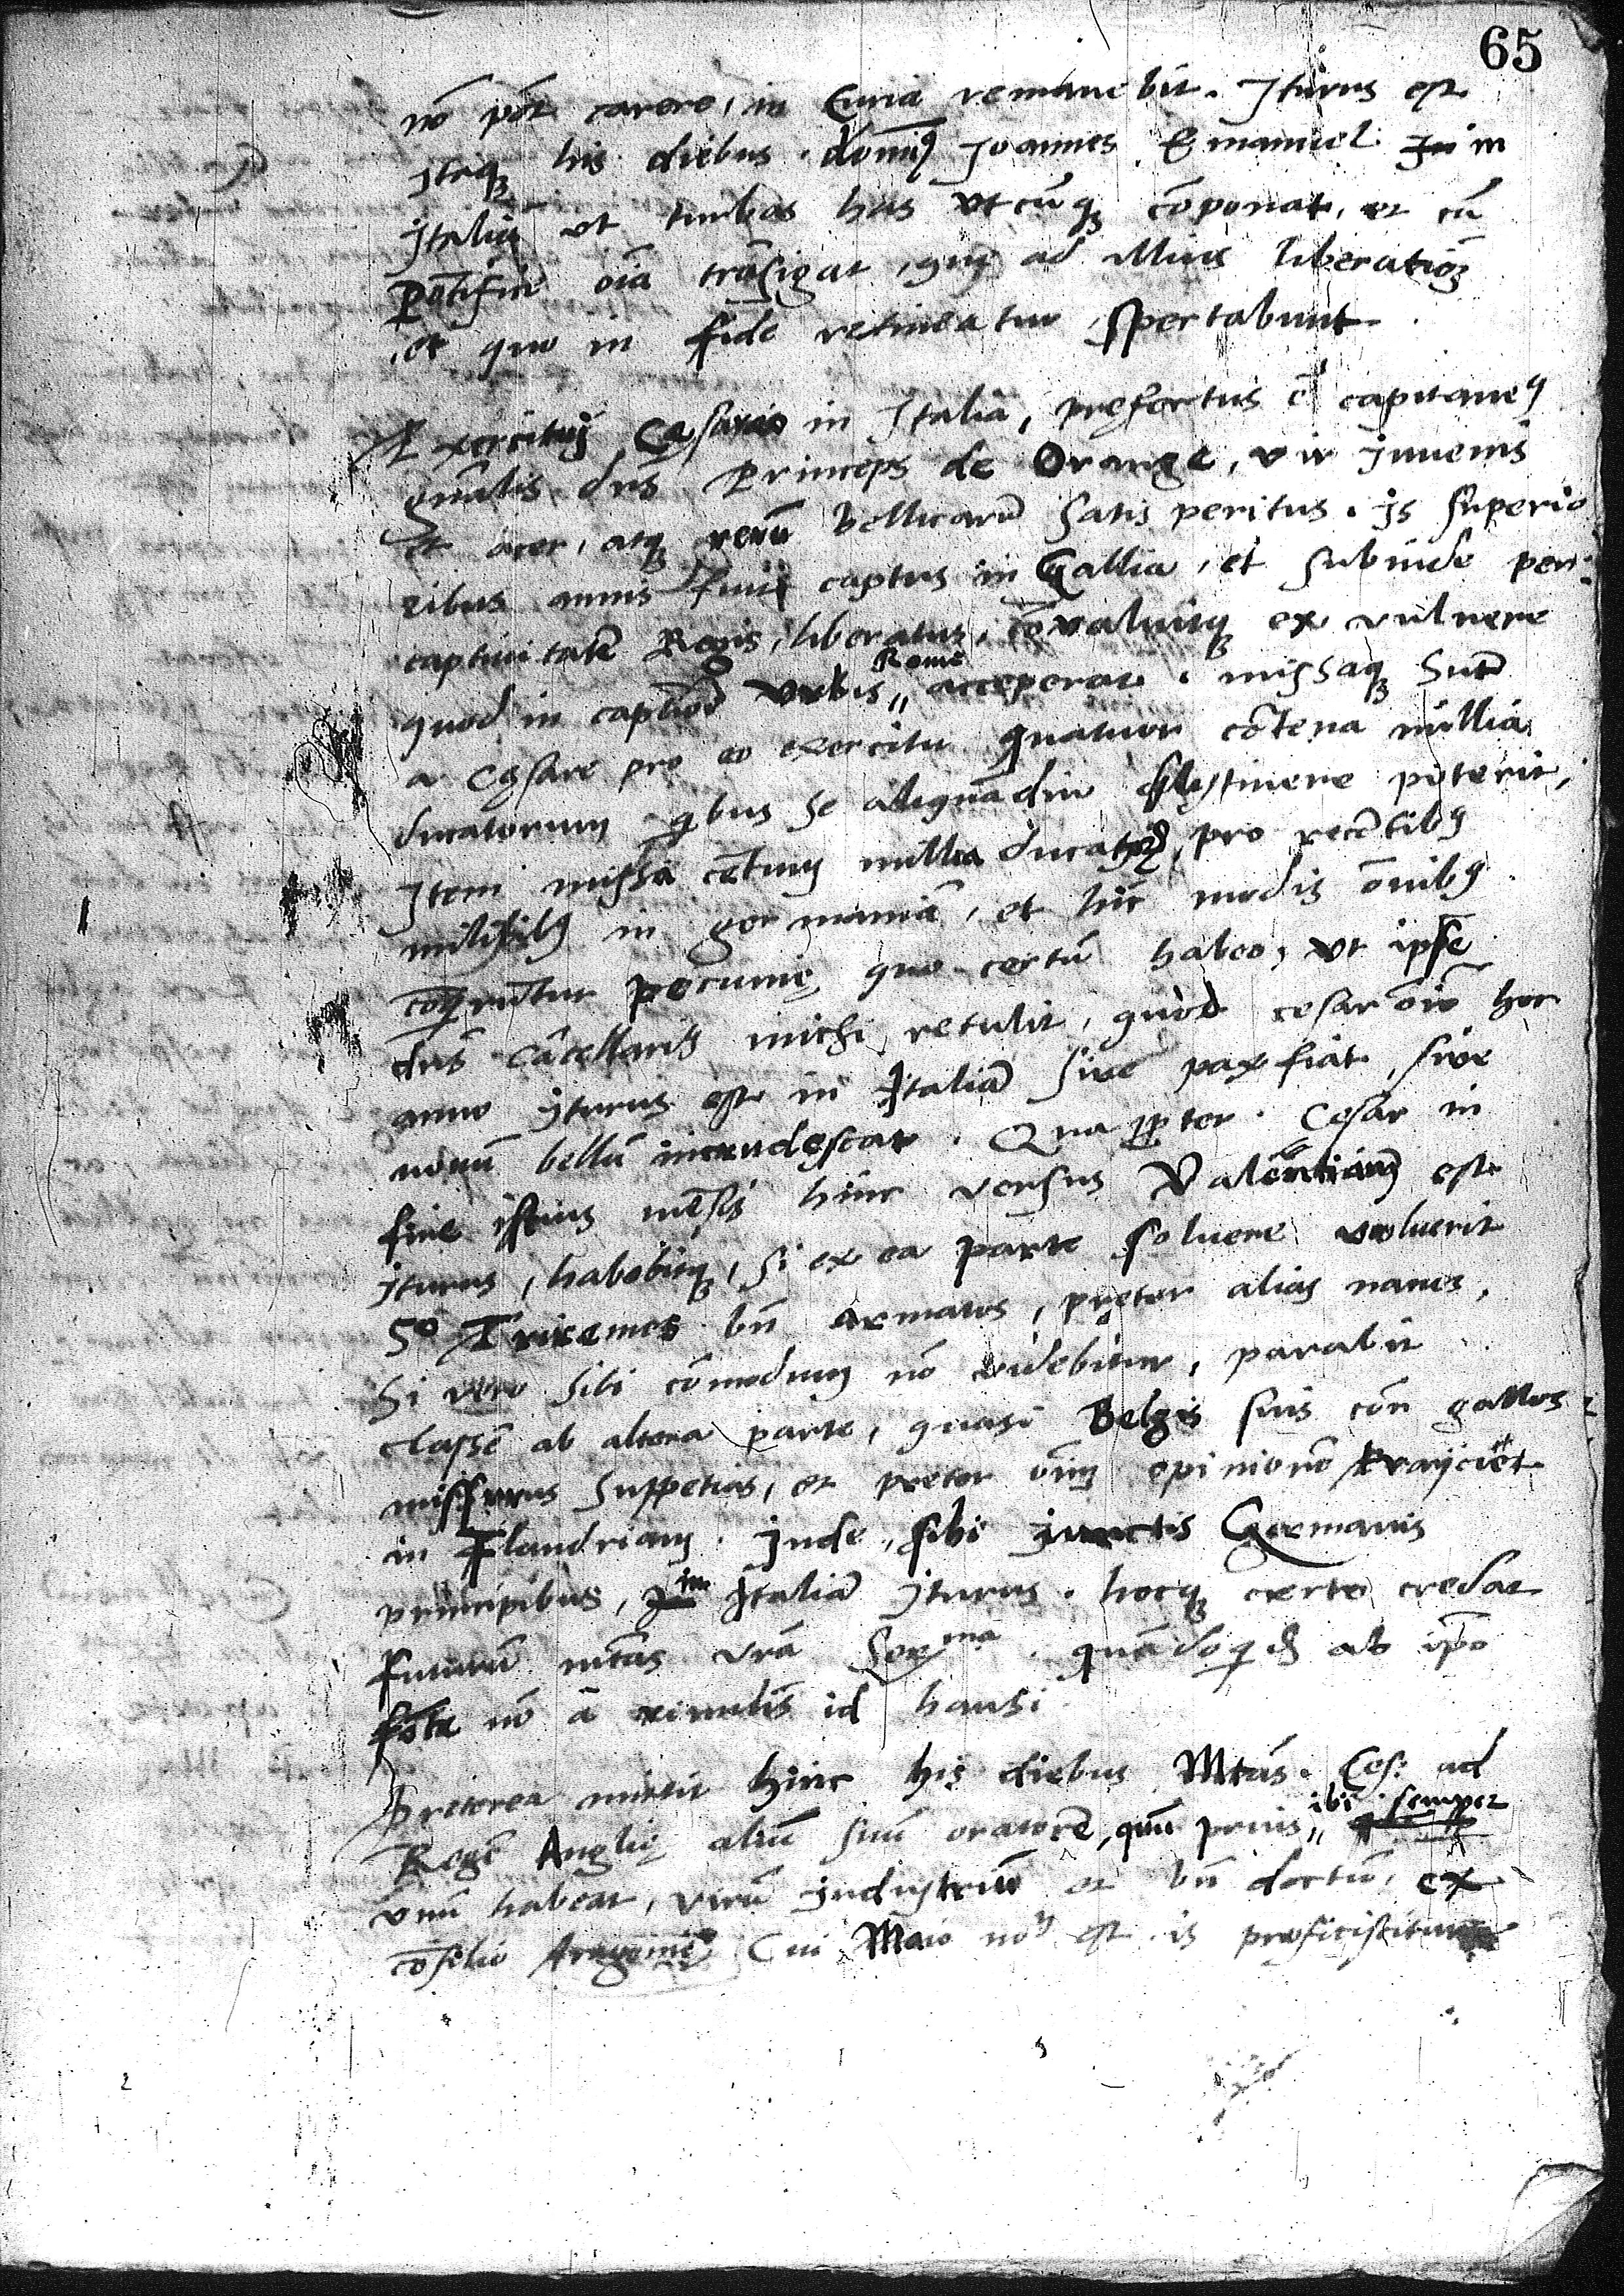 65
nō pōt carere, in Curia remanebit. Iturus est
Itaq; his diebus domi9 Joannes Emanuel in
Italiā ut turbas has utcūq; cōponat, et cū
Pōtifice oīa trāsigat, quę ad illius liberationē
et quo in fide retineatur, spectabunt.
Exercitui Cęsareo in Italia, pręfectus ē capitane9
gnālis dn̄s Princeps de Orange, vir Juvenis
et acer, atq; rerū bellicarū satis peritus. is superio
ribus annis fuit captus in Gallia, et subinde per
captiuitatē Regis, liberatus, cōvaluitq; ex vulnere
quod in captiōe Urbis Romę acceperat. missaq; sūt
a Cęsare pro eo exercitu quatuor cētena millia
ducatorum qbus se aliquādiu sustinere poterit,
Item missa cētum millia ducatorū, pro recētib9
militib9 in germaniā, et hic modis ōnib9
coguntur pecunię, quo certū habeo, ut ipse
dn̄s Cācellari9 michi retulit, quod cesar oīo hoc
anno iturus est in Italiā sive pax fiat, sive
nouū bellū incrudescat. Quapropter Cesar in
fine istius mēsis hinc versus Valentiam est
iturus, habebitq;, si ex ea parte soluere voluerit
50 Triremes bn̄ armatas, pręter alias naues,
Si vero sibi cōmodum nō videbitur, parabit
classē ab altera parte, quasi Belgis suis con gallos
missurus suppetias, et preter ōniū opinionē traijciet
in Flandriam. Inde, sibi junctis Germanis
principibus, in Italiā iturus. hocq; certo credat
futurū mtas vrā Serma quādoqd ab ipo
fōte nō ā rivulis id hausi
Preterea mittit hinc his diebus Mtās. Ces: ad
Regē Anglię aliū suū oratorē, quū prius ibi semper
unū habeat, virū industriū et bn̄ doctū, ex
cōsilio Aragonię Cui Maio nomē est. is proficiscitur